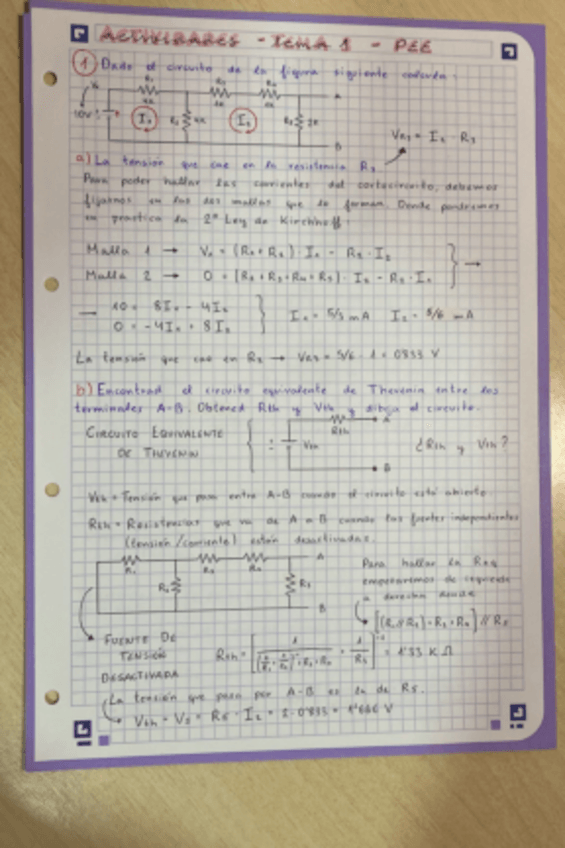 ACTIVIDADES - TEMA 1 - PEE
1 Dado el circuito de la figura siguiente calcula:
R1
R3
R4
A
4K
10V
I1
R2 4K
I2
R5 2K
B
VR3 = I2 · R3
a) La tensión que cae en la resistencia R3
Para poder hallar las corrientes del cortocircuito, debemos
fijarnos en las dos mallas que lo forman. Donde pondremos
en practica la 2ª Ley de Kirchhoff:
Malla 1 → = (R1 + R2) · I1 - R2 · I2
Malla 2 → 0 = (R2 + R3 + R4 + R5) · I2 - R2 · I1
→ 10 = 8I1 - 4I2
0 = -4I1 + 8I2
I1 = 5/3 mA I2 = 5/6 mA
La tensión que cae en R3 → VR3 = 5/6 · 1 = 0'833 V
b) Encontrad el circuito equivalente de Thevenin entre los
terminales A-B. Obtened Rth y Vth y dibuja el circuito.
CIRCUITO EQUIVALENTE
DE THEVENIN
Vth
Rth
A
B
¿Rth y Vth?
Vth = Tensión que pasa entre A-B cuando el circuito está abierto.
Rth = Resistencias que va de A a B cuando las fuentes independientes
(tensión/corriente) están desactivadas.
R1
R2
R3
R4
A
R5
B
Para hallar la Req
empezaremos de izquierda
a derecha donde
[(R1//R2) + R3 + R4] // R5
FUENTE DE
TENSIÓN
DESACTIVADA
Rth = = 1'33 KΩ
La tensión que pasa por A-B es la de R5.
Vth = V5 = R5 · I2 = 2 · 0'833 = 1'666 V